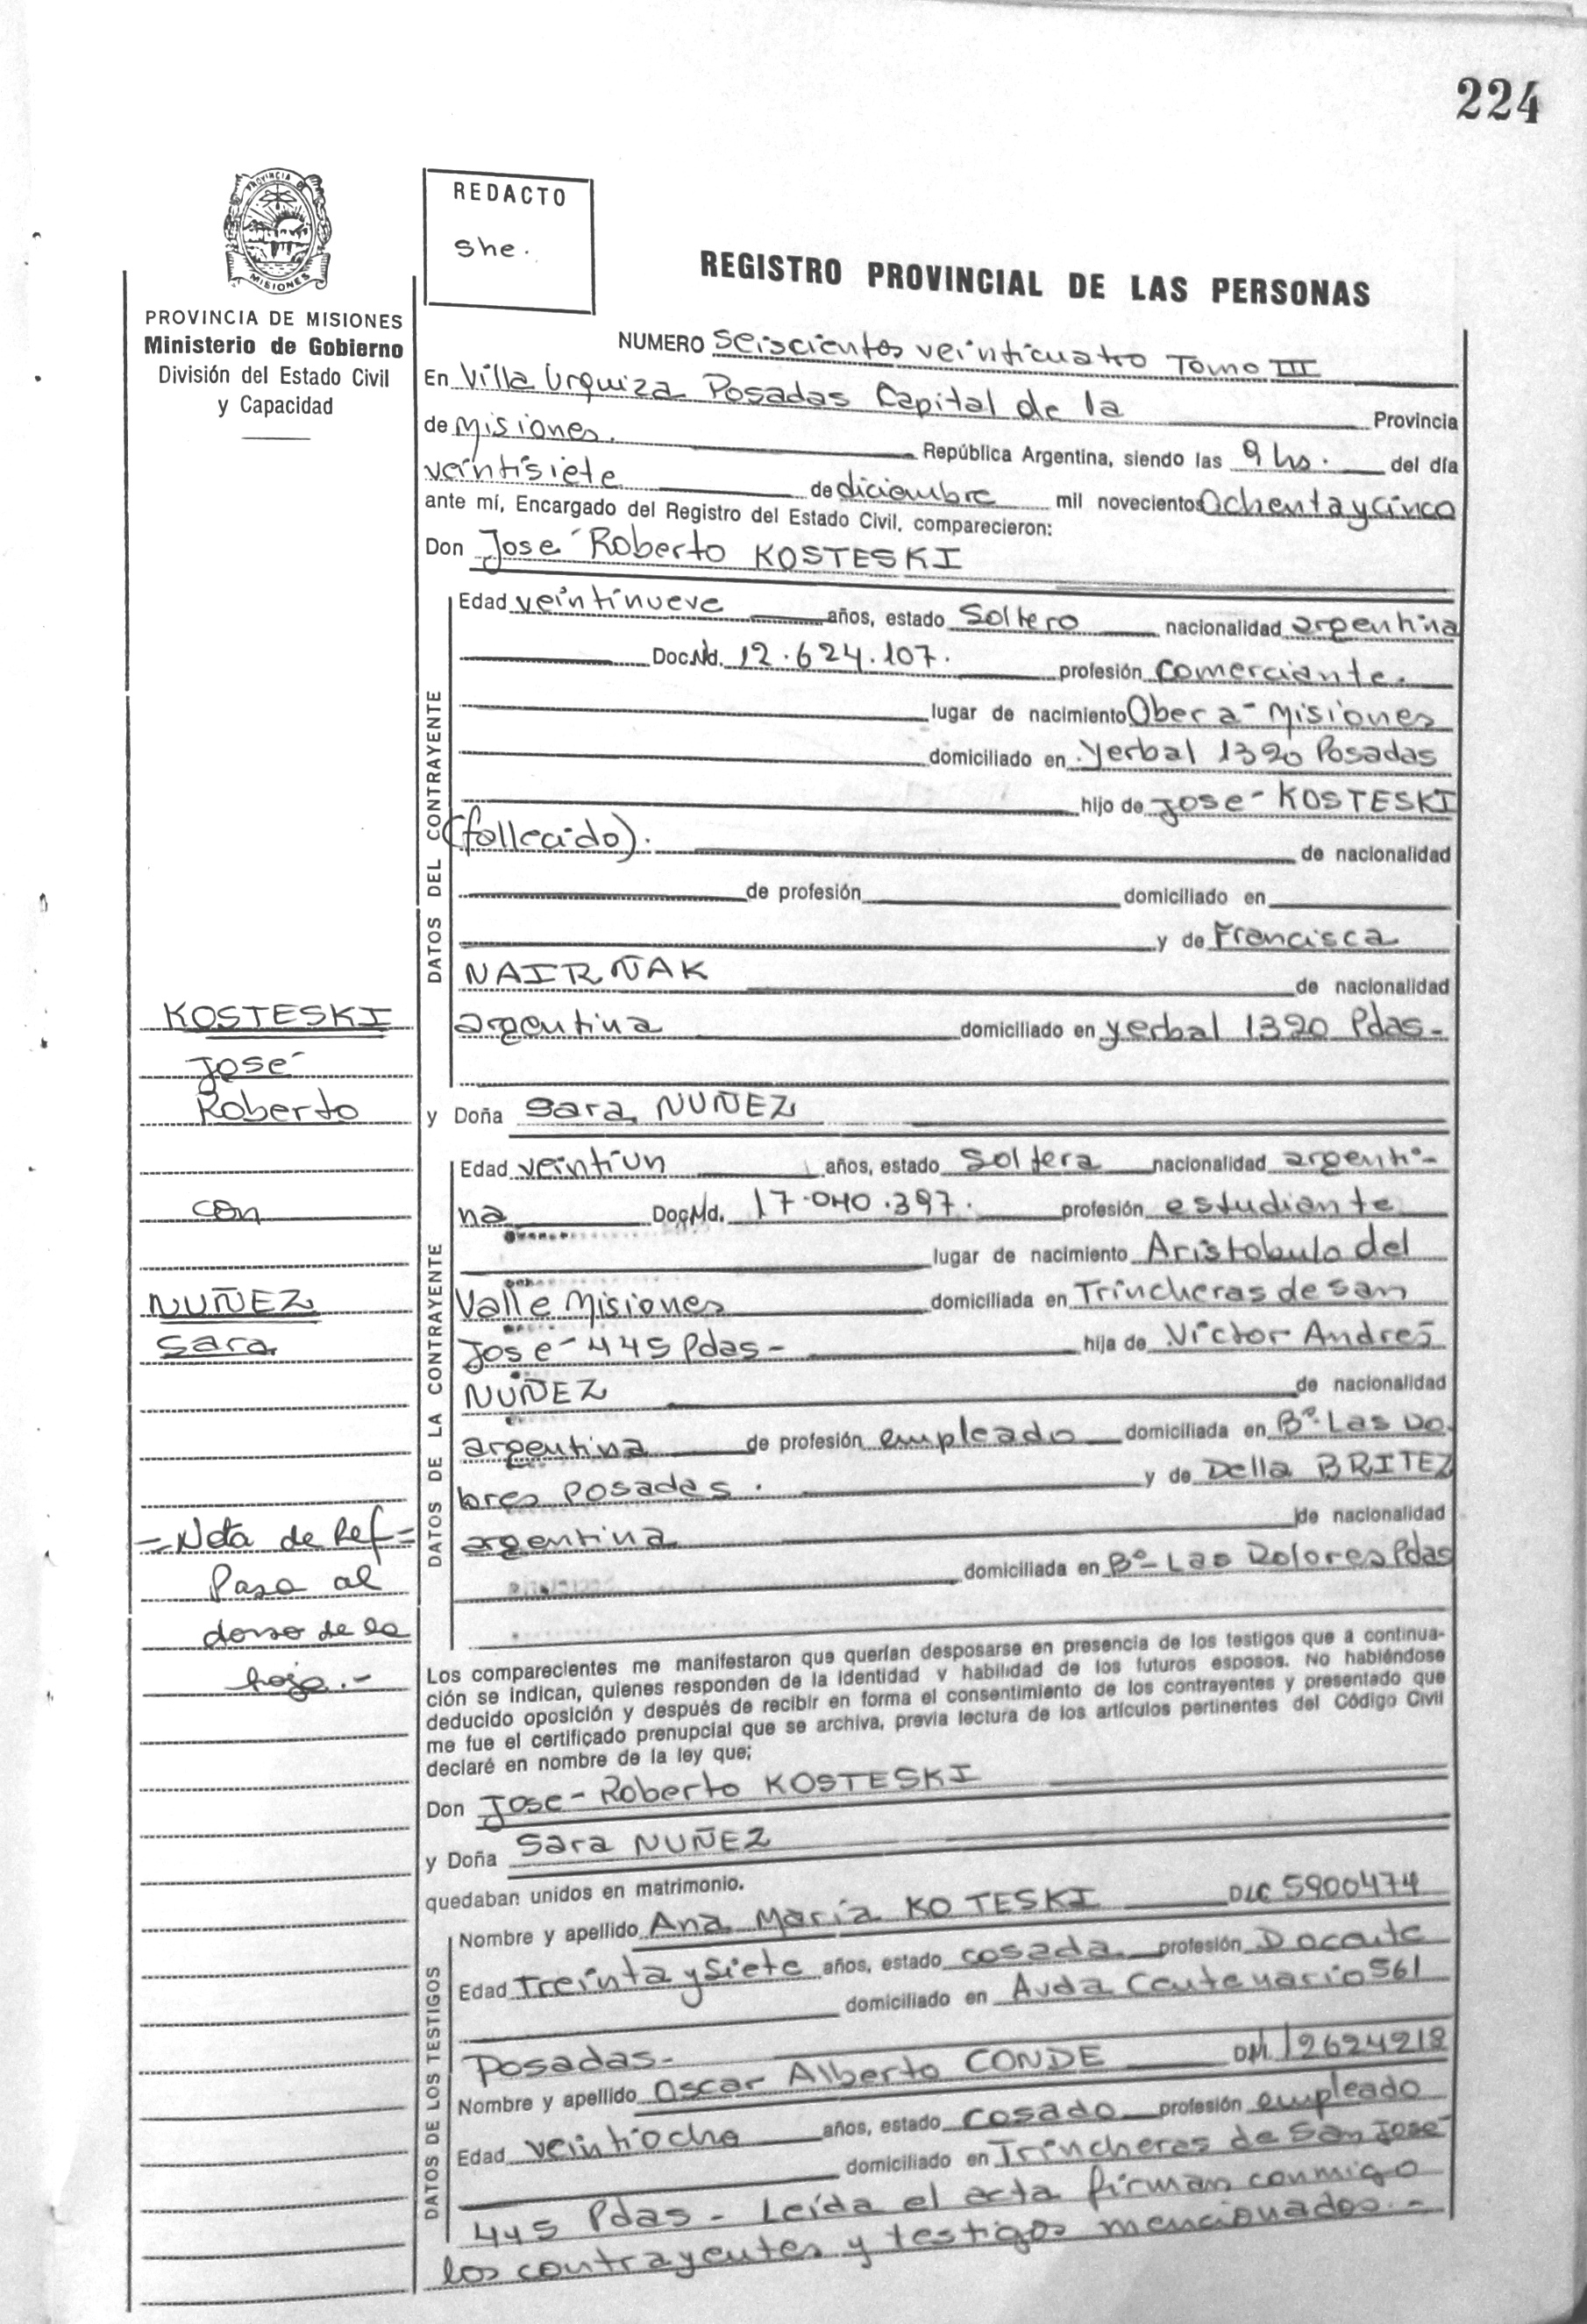 224
PROVINCIA DE
MISIONES
REDACTO
She.
REGISTRO PROVINCIAL DE LAS PERSONAS
PROVINCIA DE MISIONES
Ministerio de Gobierno
División del Estado Civil
y Capacidad
NUMERO Seiscientos veinticuatro Tomo III
En Villa Urquiza Posadas Capital de la Provincia
de Misiones. República Argentina, siendo las 9 hs. del día
veintisiete de diciembre mil novecientos Ochenta y Cinco
ante mí, Encargado del Registro del Estado Civil, comparecieron:
Don José Roberto KOSTESKI
DATOS DEL CONTRAYENTE
Edad veintinueve años, estado Soltero nacionalidad argentina
Doc.Nd. 12.624.107. profesión Comerciante.
lugar de nacimiento Obera- Misiones
domiciliado en Yerbal 1320 Posadas
hijo de Jose- KOSTESKI
(fallecido). de nacionalidad
de profesión domiciliado en
y de Francisca
NAIRÑAK de nacionalidad
argentina domiciliado en yerbal 1320 Pdas-
KOSTESKI
José
Roberto
con
NUÑEZ
Sara
=Nota de Ref=
Pasa al
dorso de la
hoja.-
y Doña Sara NUÑEZ
DATOS DE LA CONTRAYENTE
Edad veintiun años, estado Soltera nacionalidad argenti-
na Doc.Nd. 17.040.397. profesión estudiante
lugar de nacimiento Aristobulo del
Valle Misiones domiciliada en Trincheras de San
Jose- 445 Pdas- hija de Victor Andrés
NUÑEZ de nacionalidad
argentina de profesión empleado domiciliada en Bº- Las Do.
lores Posadas. y de Delia BRITEZ
argentina de nacionalidad
domiciliada en Bº- Las Dolores Pdas
Los comparecientes me manifestaron que querían desposarse en presencia de los testigos que a continua-
ción se indican, quienes responden de la identidad y habilidad de los futuros esposos. No habiéndose
deducido oposición y después de recibir en forma el consentimiento de los contrayentes y presentado que
me fue el certificado prenupcial que se archiva, previa lectura de los artículos pertinentes del Código Civil
declaré en nombre de la ley que;
Don Jose- Roberto KOSTESKI
y Doña Sara NUÑEZ
quedaban unidos en matrimonio.
DATOS DE LOS TESTIGOS
Nombre y apellido Ana María KO TESKI DLC 5900474
Edad Treinta y Siete años, estado casada profesión Docente
domiciliado en Avda Centenario 561
Posadas-
Nombre y apellido Oscar Alberto CONDE DNI. 12624218
Edad veintiocho años, estado casado profesión empleado
domiciliado en Trincheras de San José
445 Pdas - Leída el acta firman conmigo
los contrayentes y testigos mencionados.-